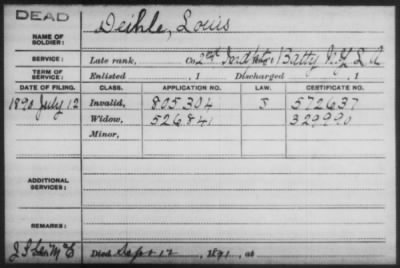 DEAD
NAME OF SOLDIER: Deihle, Louis
SERVICE: Late rank, Co. 2nd Ind't Batty N.Y. L A
TERM OF SERVICE: Enlisted , 1 Discharged , 1
DATE OF FILING. CLASS. APPLICATION NO. LAW. CERTIFICATE NO.
1890 July 12 Invalid, 805304 J 572637
Widow, 526841 329990
Minor,
ADDITIONAL SERVICES:
REMARKS:
Died Sept 12, 1891, at